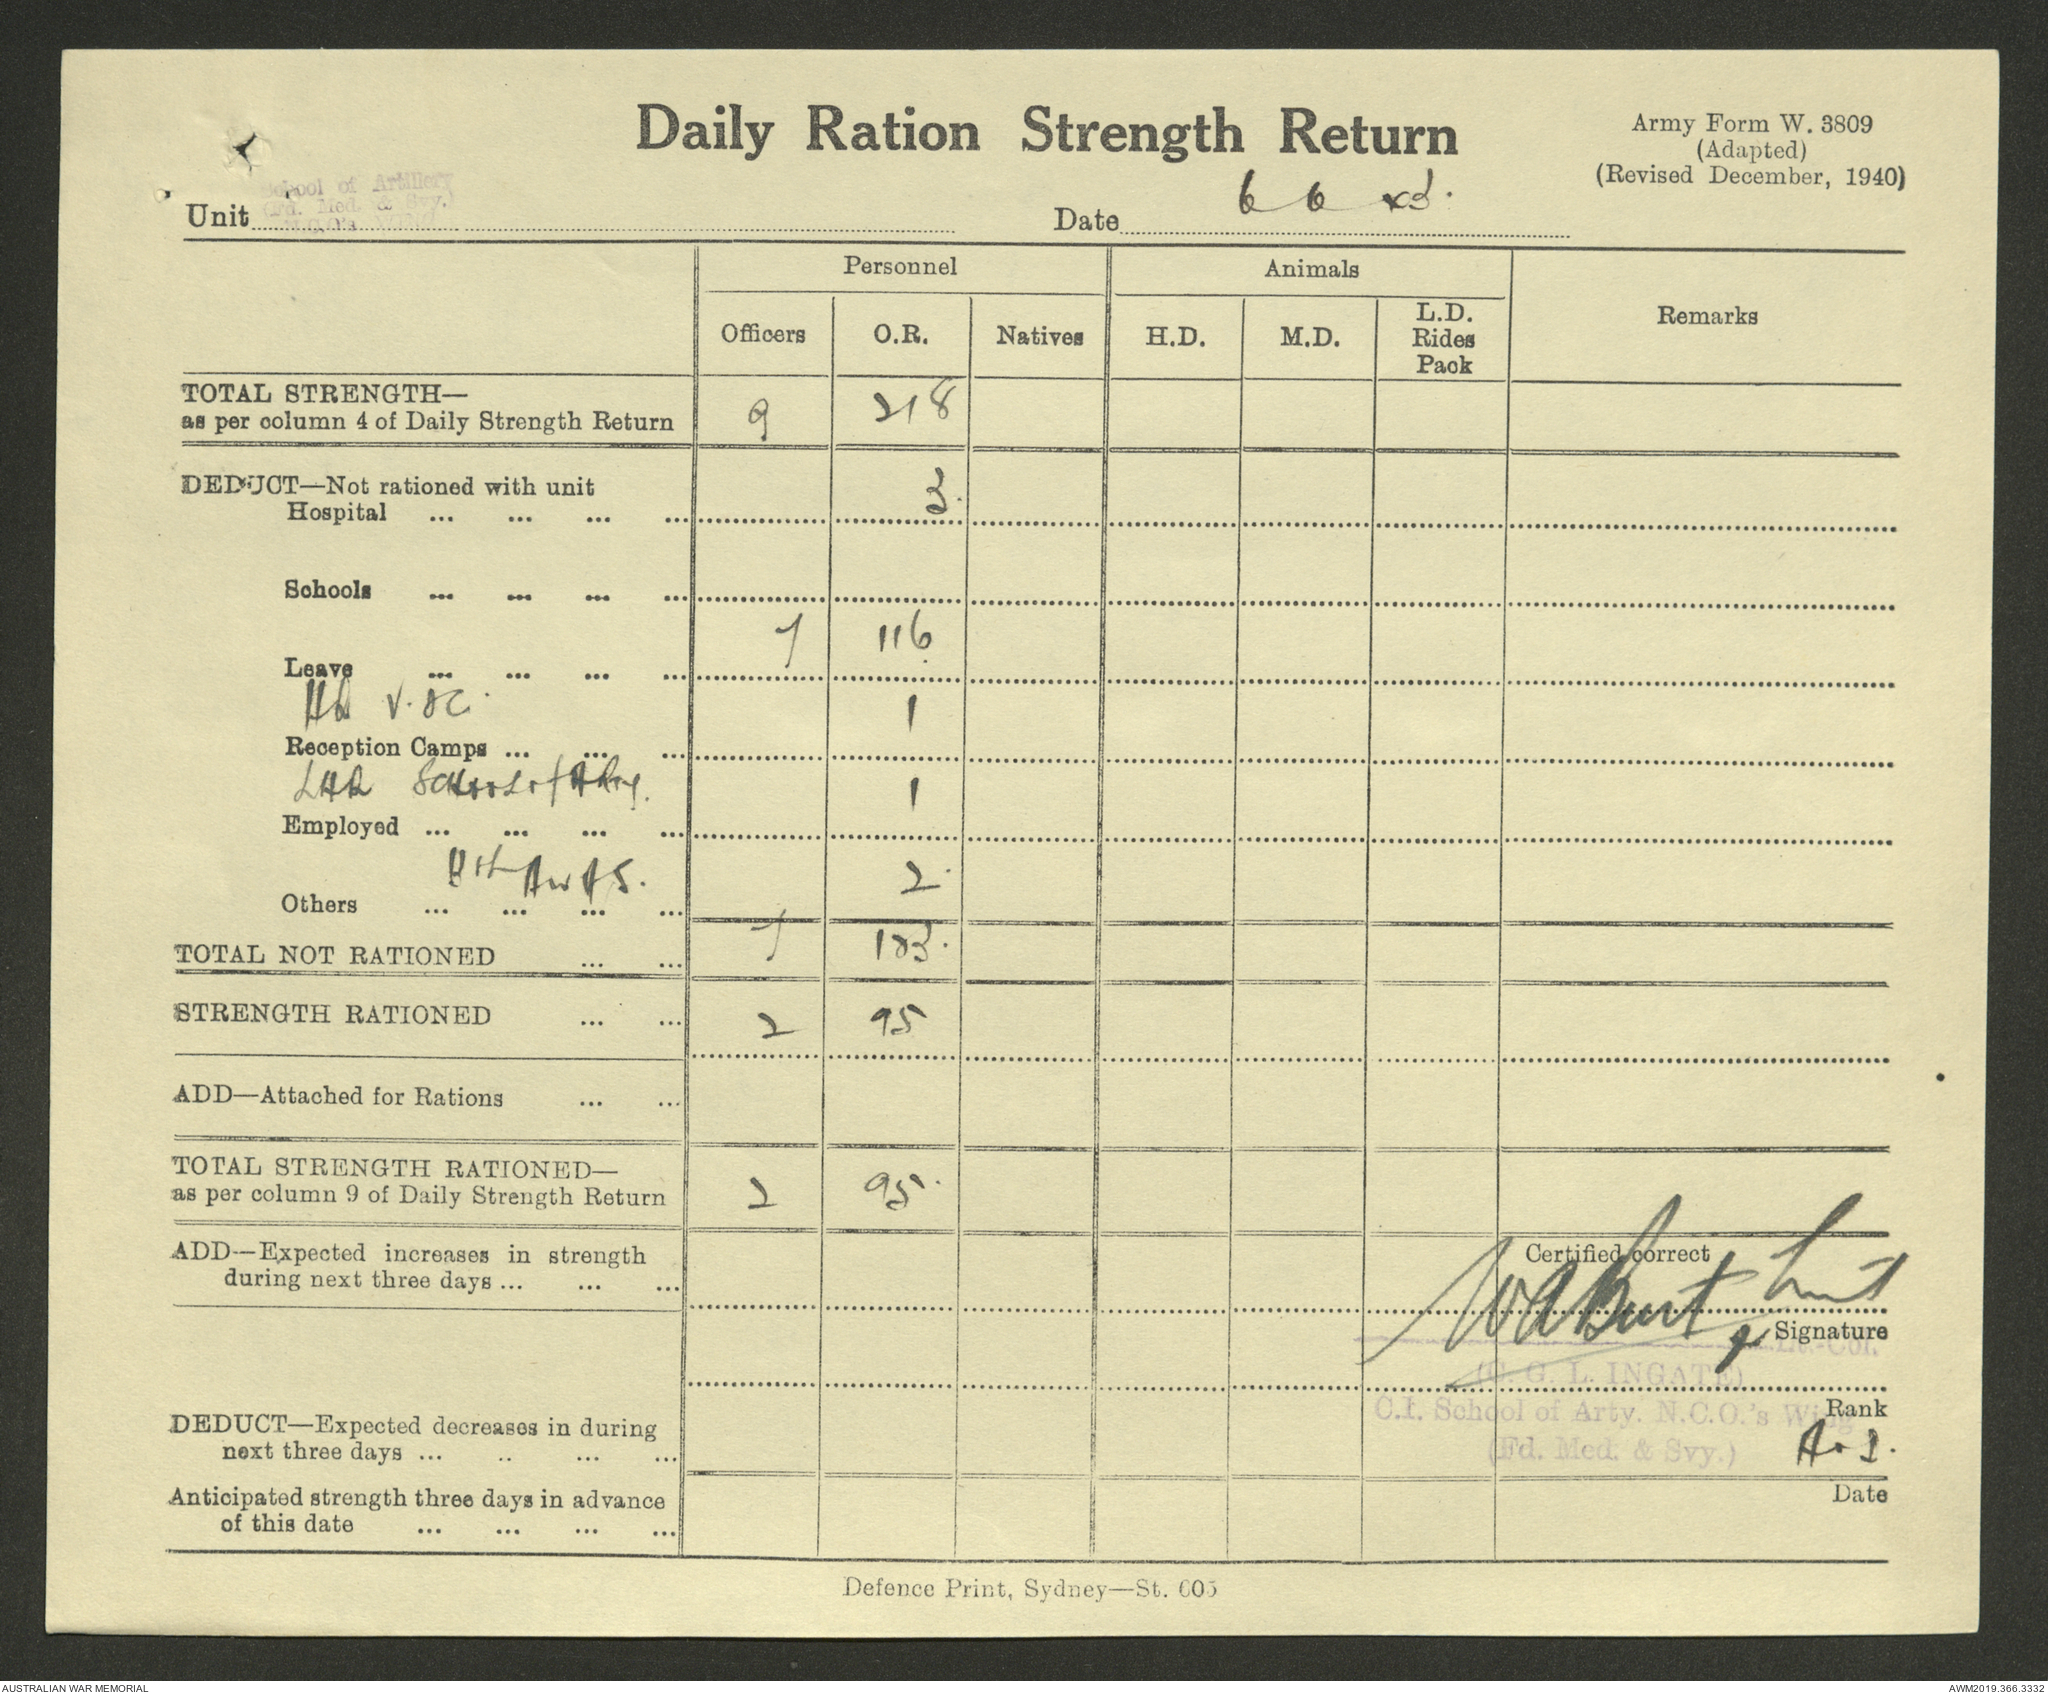 Daily Ration Strength Return
Army Form W. 3809
(Adapted)
(Revised December, 1940)
School of Artillery
(Fd. Med. & Svy.)
N.C.O's
Unit
Date 6 6 43.
Personnel
Animals
Remarks
Officers O.R. Natives H.D. M.D. L.D. Rides Pack
TOTAL STRENGTH—
as per column 4 of Daily Strength Return 9 218
DEDUCT—Not rationed with unit
Hospital ... ... ... ... 3.
Schools ... ... ... ...
Leave ... ... ... ... 7 116
Reception Camps ... ... ... 1
School of Arty.
Employed ... ... ... ... 1
AWAS.
Others ... ... ... ... 2.
TOTAL NOT RATIONED ... ... 7 123.
STRENGTH RATIONED ... ... 2 95
ADD—Attached for Rations ... ...
TOTAL STRENGTH RATIONED—
as per column 9 of Daily Strength Return 2 95.
ADD—Expected increases in strength
during next three days ... ... ...
Certified correct
WABurt Lieut
Signature
Lt.-Col.
(C. G. L. INGATE)
Rank
C.I. School of Arty. N.C.O.'s Wing
(Fd. Med. & Svy.)
DEDUCT—Expected decreases in during
next three days ... .. ... ...
Date
Anticipated strength three days in advance
of this date ... ... ... ...
Defence Print, Sydney—St. 605
AUSTRALIAN WAR MEMORIAL
AWM2019.366.3332